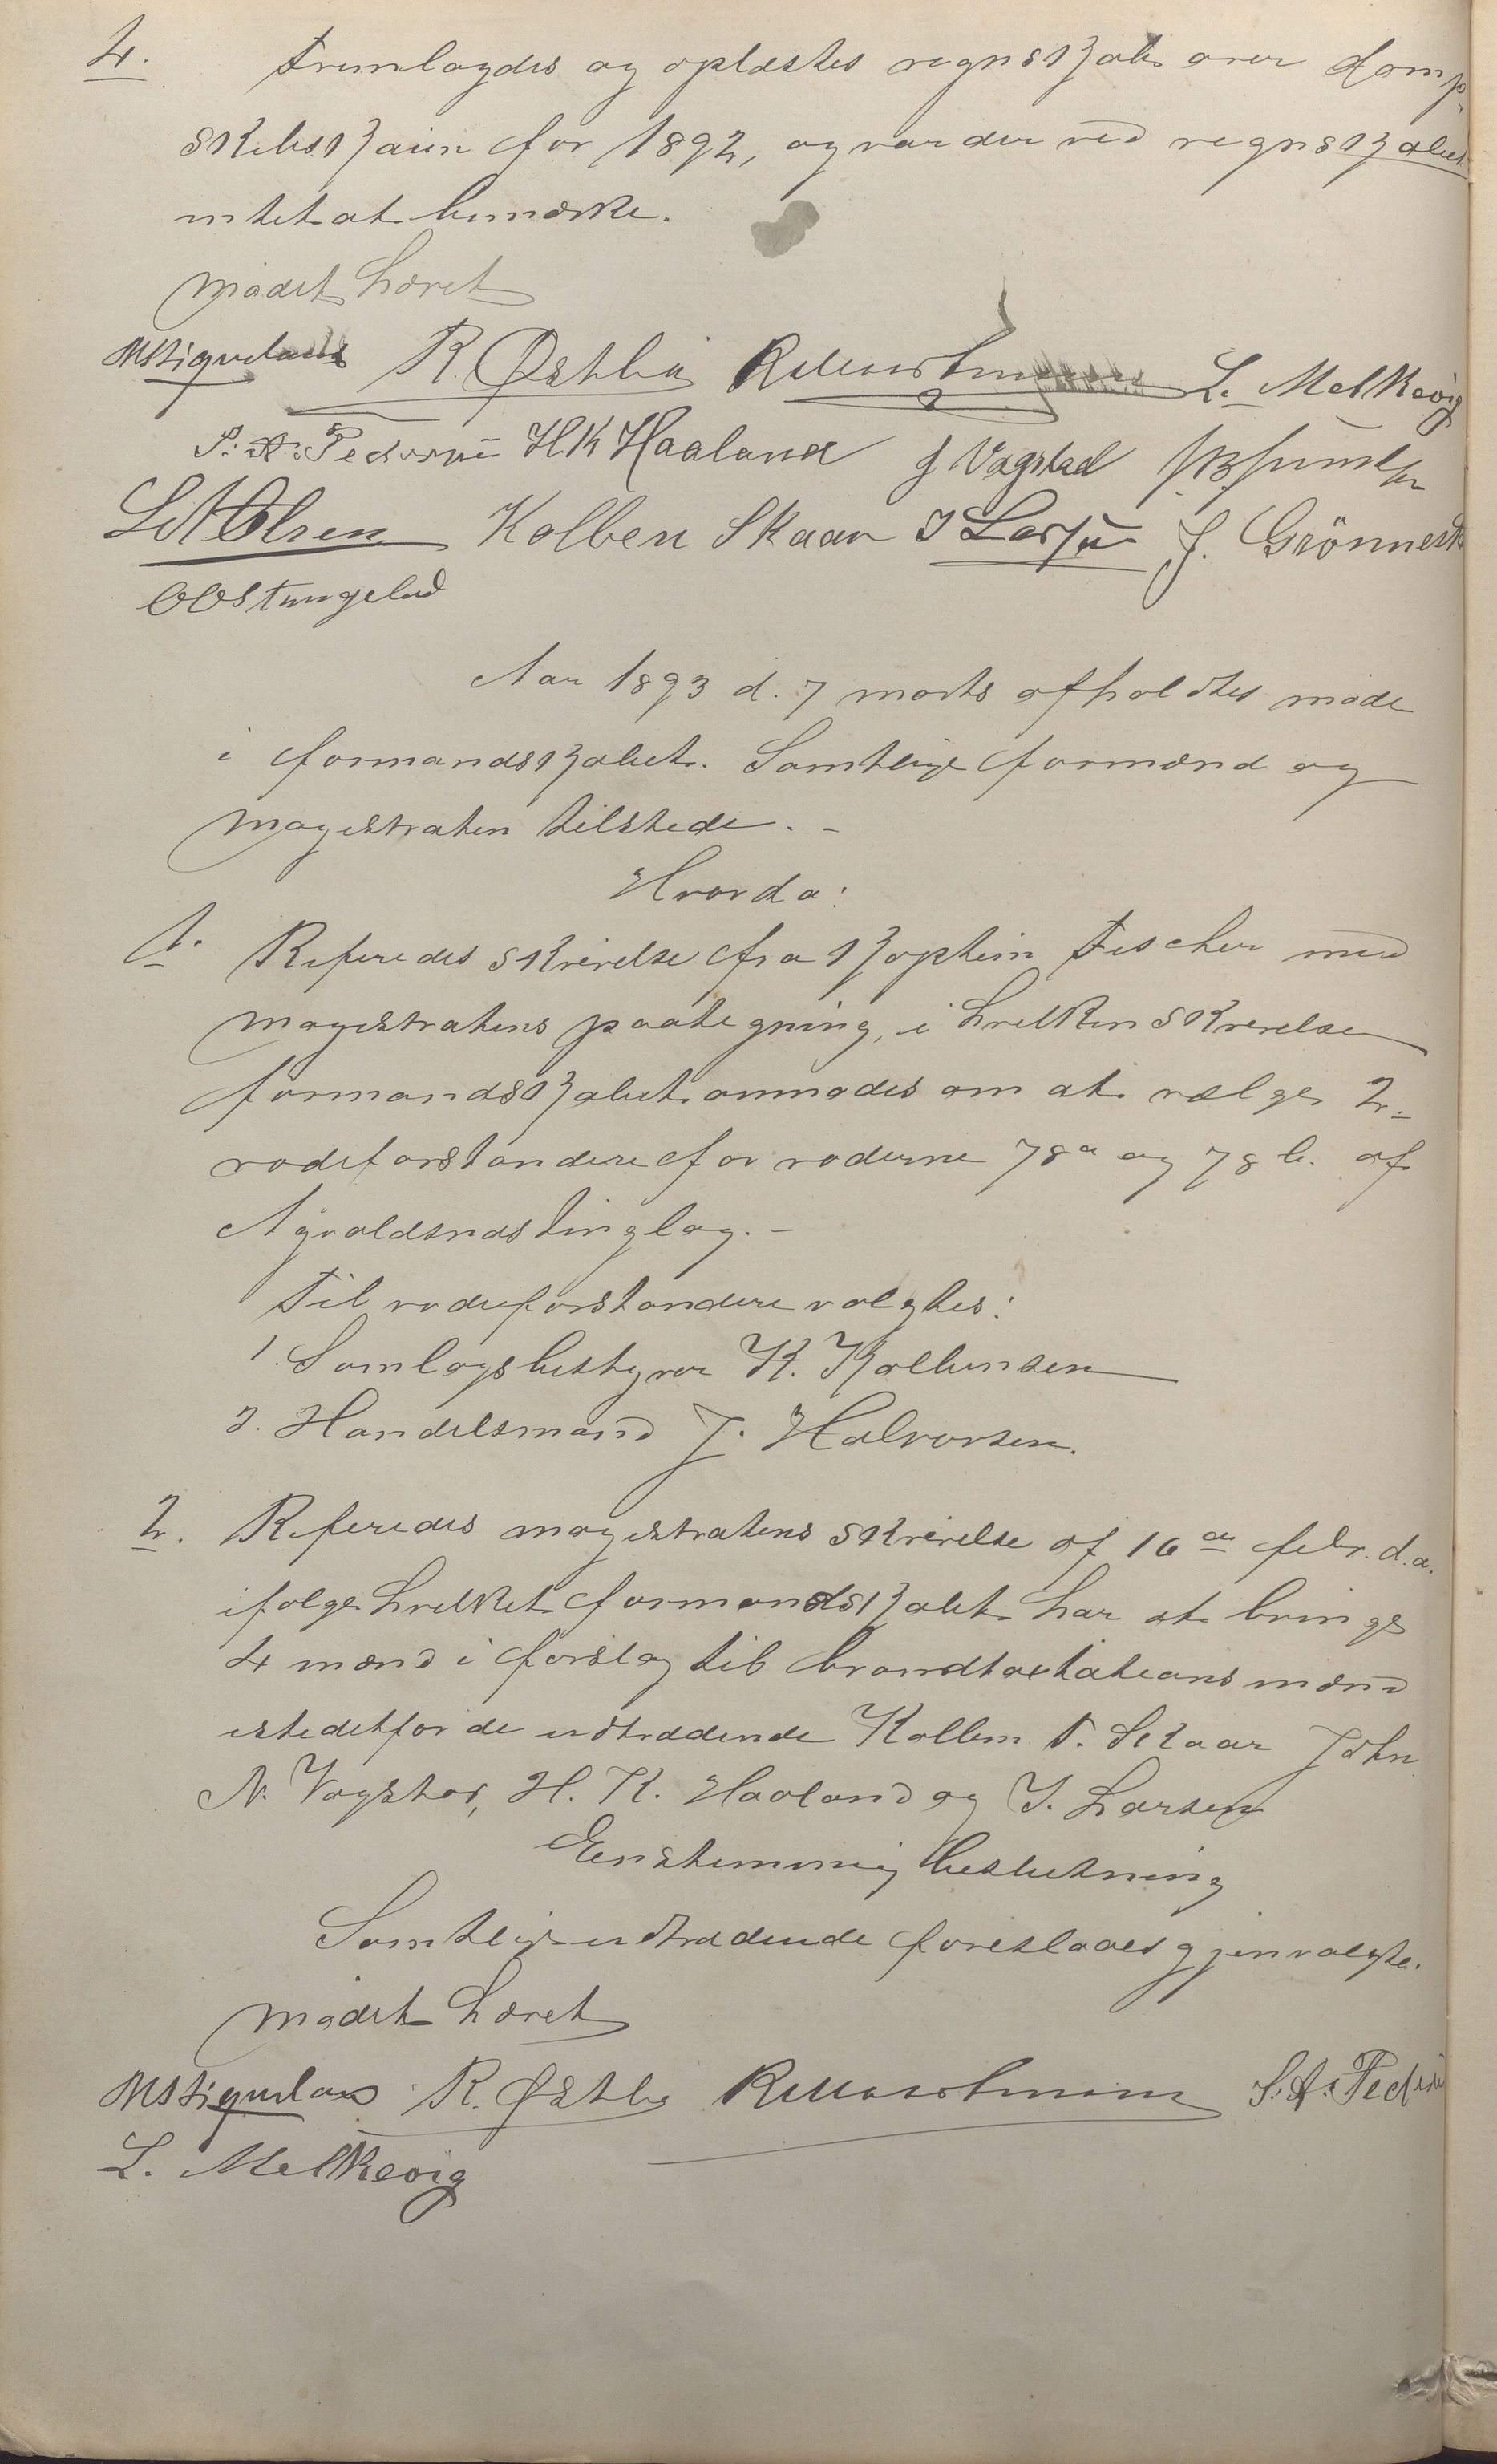 4. Fremlagdes og oplæstes regnskab over damp-
skibskaien for 1892, og var der ved regnskabet
intet at bemærke.
Mødet hævet
R. Østbø L. Melkevig
S. A. Pedersen H K Haaland J Vagstad
Kolben Skaar I Larsen J. Grönnest
Aar 1893 d. 7 marts afholdtes møde
i formandskabet. Samtlige formænd og
magistraten tilstede. –
Hvorda:
1. Referedes skrivelse fra kaptein Fischer med
magistratens paategning, i hvilken skrivelse
formandskabet anmodes om at vælge 2
rodeforstandere for roderne 78a og 78b. af
Agvaldsnæs tinglag. –
Til rodeforstandere valgtes:
1. Samlagsbestyrer K. Kolbensen
2. Handelsmand J. Halvorsen.
2. Referedes magistratens skrivelse af 16de febr. d. a.
ifølge hvilket formandskabet har at bringe
4 mænd i forslag til brandtaxtationsmænd
istedetfor de udtrædende Kolben T. Skaar John
N. Vagstad, H. K. Haaland og I. Larsen
Eenstemmig beslutning
Samtlige udtrædende foreslaaes gjenvalgte.
Mødet hævet
R. Østbø S. A. Peders
L. Melkevig